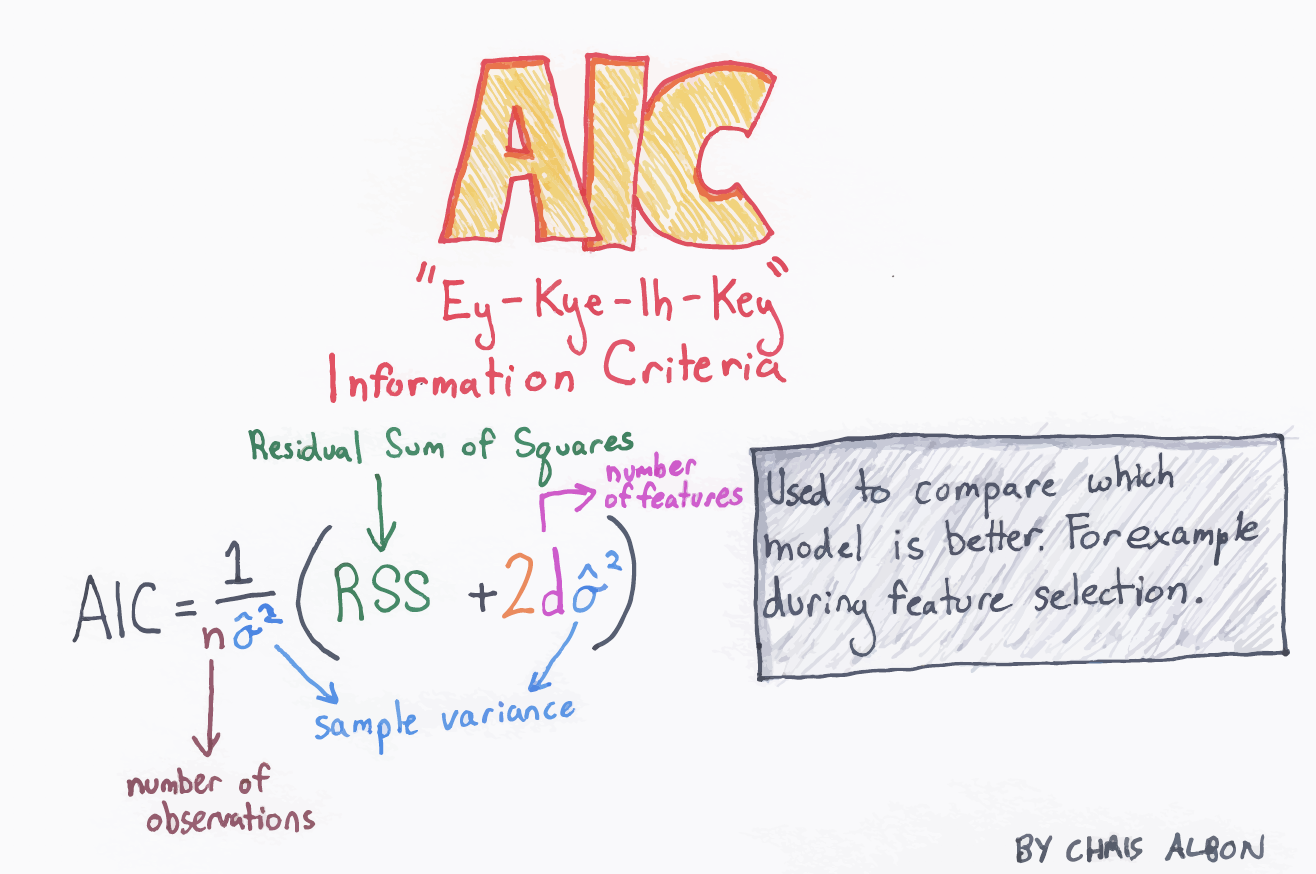 AIC
"Ey-Kye-Ih-Key"
Information Criteria
Residual Sum of Squares
number
of features
AIC = 1/(nσ̂²) (RSS + 2dσ̂²)
sample variance
number of
observations
Used to compare which
model is better. For example
during feature selection.
BY CHRIS ALBON